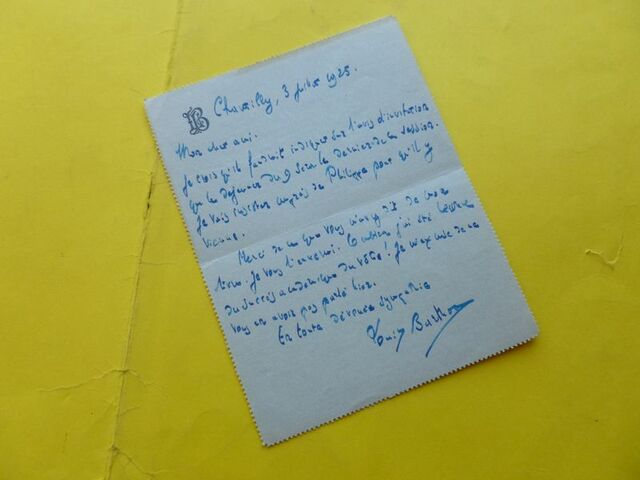 LB
Chantilly, 3 juillet 1925.
Mon cher ami.
Je crois qu'il faudrait indiquer sur l'avis d'invitation
que le déjeuner du 9 sera le dernier de la session.
Je vais insister auprès de Philippe pour qu'il y
vienne.
Merci de ce que vous m'avez dit de
Je vous l'envoie. Combien j'ai été heureux
du succès académique du vôtre! Je m'excuse de ne
vous en avoir pas parlé hier.
En toute dévouée sympathie
Louis Barthou